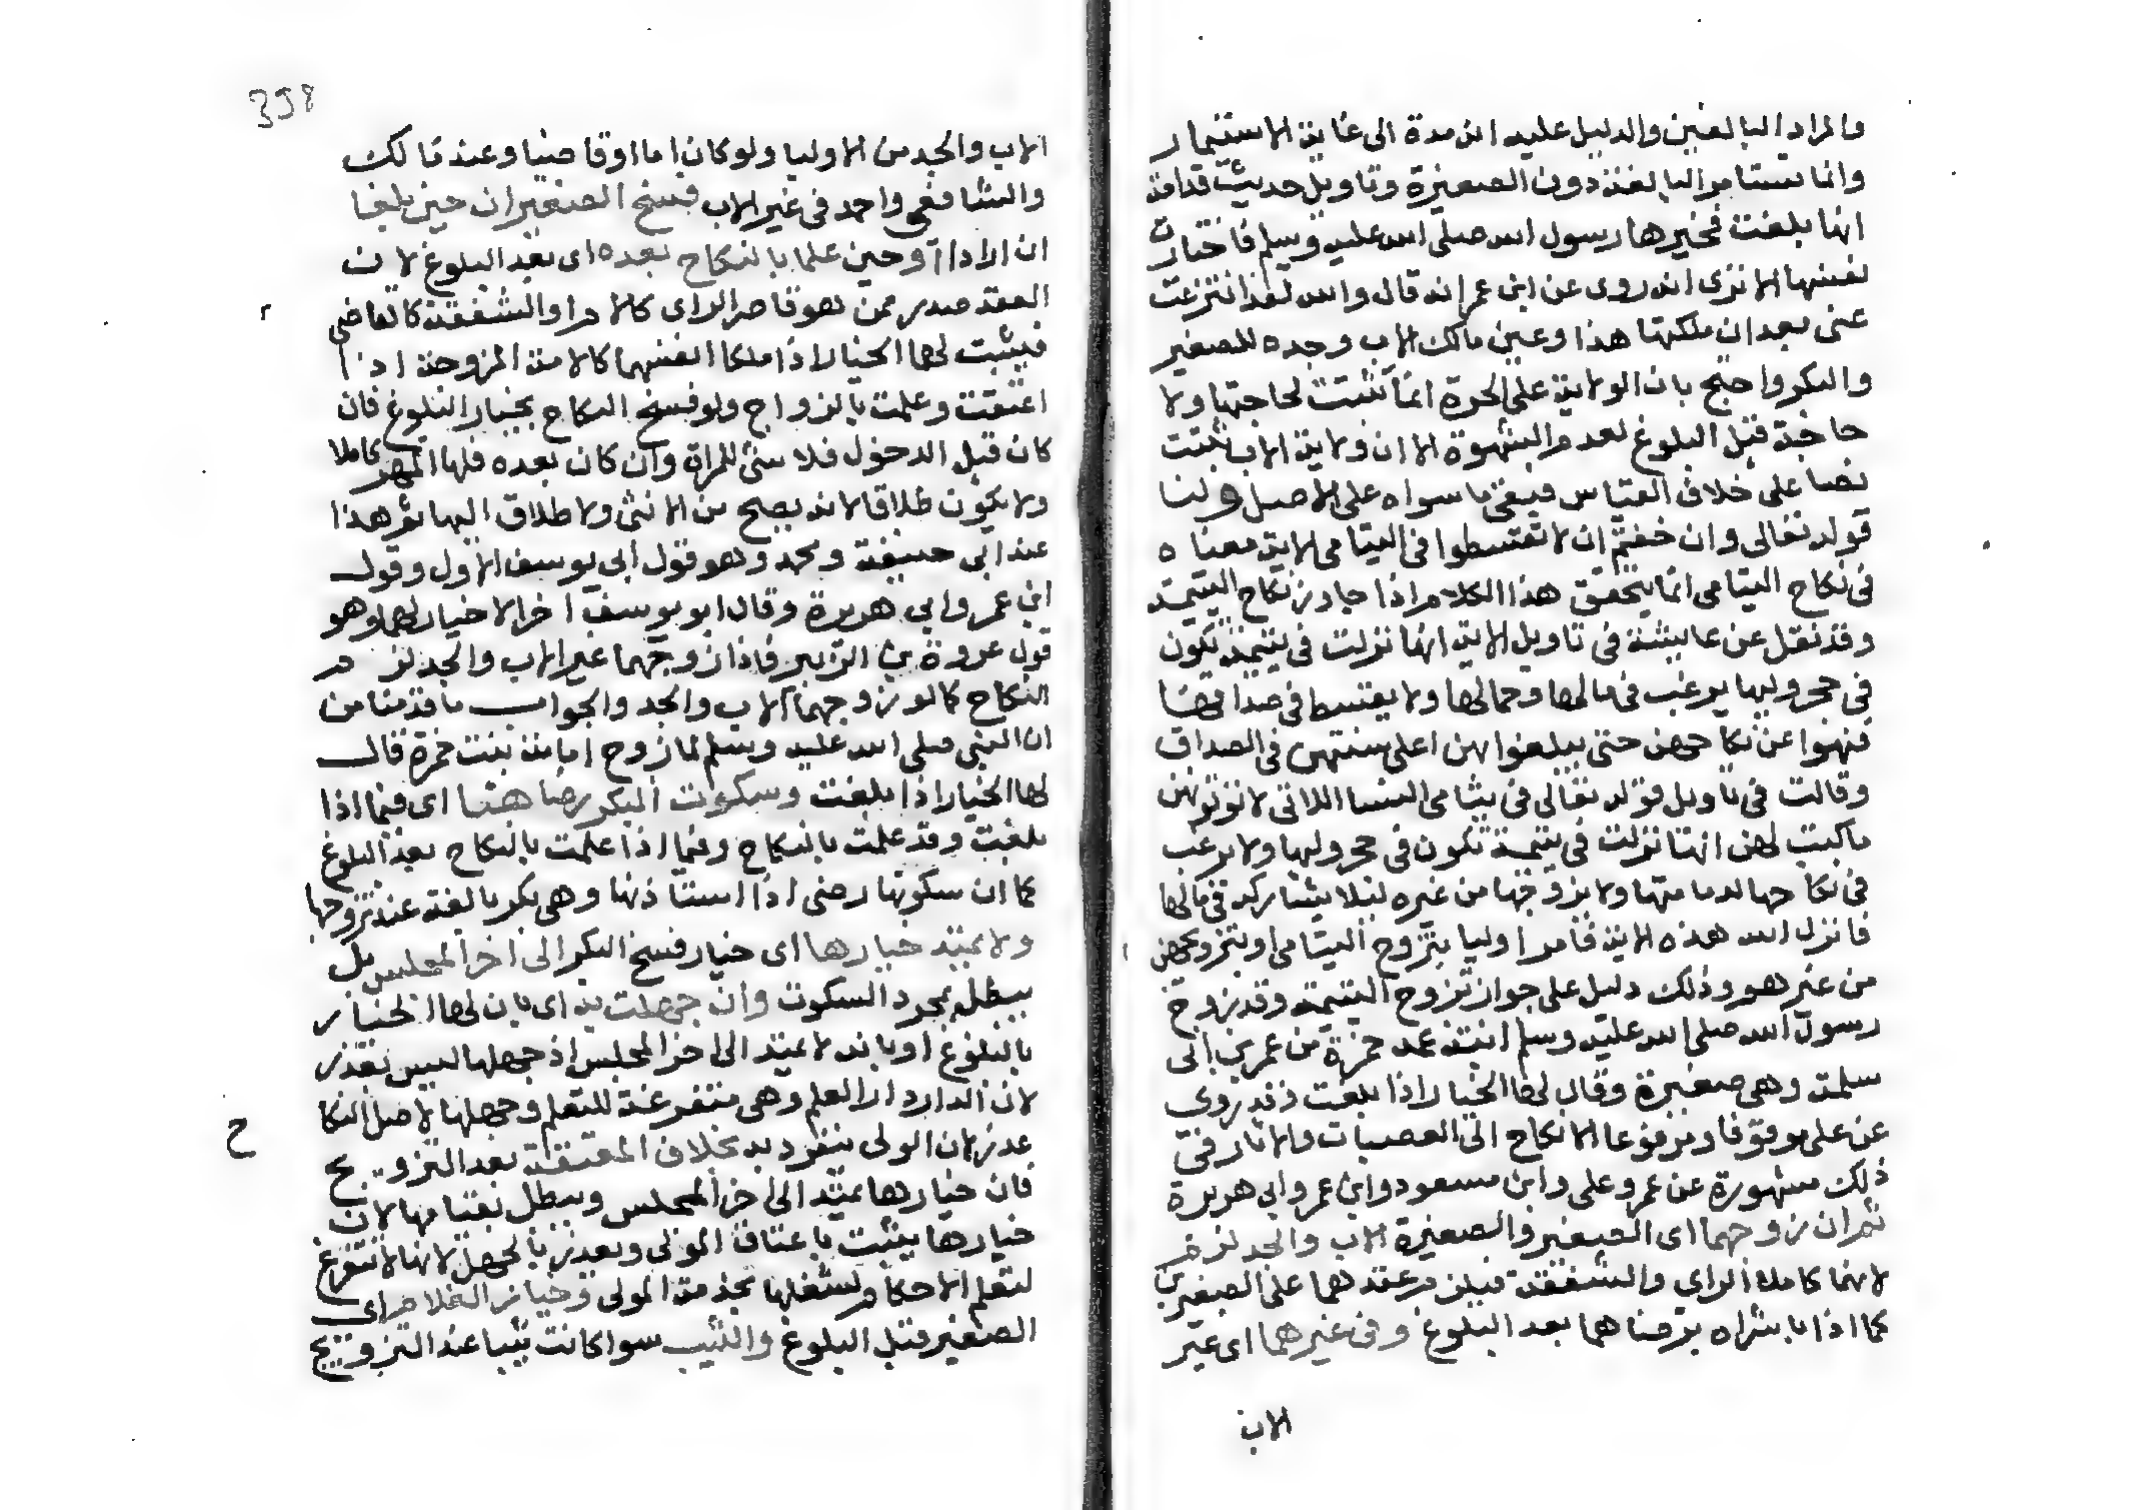 والمراد البالغين والدليل عليه انه مده الى غاية الاستيمار
وانما تستامر البالغة دون الصغيرة وتاويل حديث قدامة
انها بلغت فخيرها رسول الله صلى الله عليه وسلم فاختارت
نفسها الا ترى انه روى عن ابن عمر انه قال والله لقد انتزعت
عنى بعد ان ملكتها هذا وعين مالك الاب وحده للصغير
والبكر واحتج بان الولاية على الحرة انما تثبت لحاجتها ولا
حاجة قبل البلوغ لعدم الشهوة الا ان ولاية الاب ثبتت
نصا على خلاف القياس فيبقى ما سواه على الاصل ولنا
قوله تعالى وان خفتم ان لا تقسطوا فى اليتامى الاية معناه
فى نكاح اليتامى انما يتحقق هذا الكلام اذا جاز نكاح اليتيمة
وقد نقل عن عايشة فى تاويل الاية انها نزلت فى يتيمة تكون
فى حجر وليها يرغب فى مالها وجمالها ولا يقسط فى صداقها
فنهوا عن نكاحهن حتى يبلغوا بهن اعلى سنتهن فى الصداق
وقالت فى تاويل قوله تعالى فى يتامى النسا اللاتى لا تؤتونهن
ما كتب لهن انها نزلت فى يتيمة تكون فى حجر وليها ولا يرغب
فى نكاحها لدمامتها ولا يزوجها من غيره ليلا يشاركه فى مالها
فانزل الله هذه الاية فامر اوليا بتزوج اليتامى او بتزويجهن
من غيرهم وذلك دليل على جواز تزوج اليتيمة وقد زوج
رسول الله صلى الله عليه وسلم ابنة عمه حمزة من عمر بن ابى
سلمة وهى صغيرة وقال لها الخيار اذا بلغت وقد روى
عن على موقوفا ومرفوعا الانكاح الى العصبات والاثار فى
ذلك مشهورة عن عمر وعلى وابن مسعود وابن عمر وابى هريرة
ثم ان زوجهما اى الصغير والصغيرة الاب والجد لزم
لانهما كاملا الراى والشفقة فيلزم عقدهما على الصغيرين
كما اذا باشراه برضاهما بعد البلوغ وفى غيرهما اى غير
الاب
398
الاب والجد من الاوليا ولو كان اما او قاضيا وعند مالك
والشافعى واحمد فى غير الاب فسخ الصغيران حين بلغا
ان ارادا او حين علما بالنكاح بعده اى بعد البلوغ لان
العقد صدر ممن هو قاصر الراى كالام او الشفقة كالقاضى
فيثبت لهما الخيار اذا ملكا انفسهما كالامة المزوجة اذا
اعتقت وعلمت بالزواج ولو فسخ النكاح بخيار البلوغ فان
كان قبل الدخول فلا شئ للمراة وان كان بعده فلها المهر كاملا
ولا يكون طلاقا لانه يصح من الانثى ولا طلاق اليها ثم هذا
عند ابى حنيفة ومحمد وهو قول ابى يوسف الاول وقول
ابن عمر وابى هريرة وقال ابو يوسف اخرا لا خيار لهما وهو
قول عروة بن الزبير فاذا زوجهما غير الاب والجد لزم
النكاح كما لو زوجهما الاب والجد والجواب ما قدمنا من
ان النبى صلى الله عليه وسلم لما زوج امامة بنت حمزة قال
لها الخيار اذا بلغت وسكوت البكر رضا هنا اى فيما اذا
بلغت وقد علمت بالنكاح وفيما اذا علمت بالنكاح بعد البلوغ
كما ان سكوتها رضى اذا استاذنها وهى بكر بالغة عند تزوجها
ولا يمتد خيارها اى خيار فسخ البكر الى اخر المجلس بل
يبطل بمجرد السكوت وان جهلت به اى بان لها الخيار
بالبلوغ او بانه لا يمتد الى اخر المجلس اذ جهلها ليس بعذر
لان الدار دار العلم وهى متفرغة للتعلم وجهلها لاصل النكاح
عذر لان الولى ينفرد به بخلاف المعتقة بعد التزويج
فان خيارها يمتد الى اخر المجلس ويبطل بقيامها لان
خيارها يثبت باعتاق المولى وبعذر بالجهل لانها لا تتفرغ
لتعلم الاحكام لشغلها بخدمة المولى وخيار الغلام اى
الصغير قبل البلوغ والثيب سوا كانت ثيبا عند التزويج